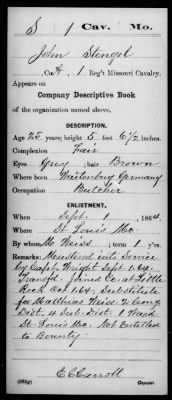 S 1 Cav. Mo.
John Stengel
, Co. A, 1 Reg't Missouri Cavalry.
Appears on
Company Descriptive Book
of the organization named above.
DESCRIPTION.
Age 25 years; height 5 feet 6 1/2 inches.
Complexion Fair
Eyes Grey; hair Brown
Where born Wertenburg Germany
Occupation Butcher
ENLISTMENT.
When Sept. 1, 1864.
Where St. Louis Mo.
By whom C. Weiss; term 1 y'rs.
Remarks: Mustered into Service
by Capt. Wright Sept. 1. 64.
Transfd. Joined Co. at Little
Rock Oct. 1. 64. Substitute
for Matthias Weiss 2 Cong.
Dist. 4 Sub. Dist. 1 Ward
St. Louis Mo. Not Entitled
to Bounty
E C Carroll
(383g) Copyist.